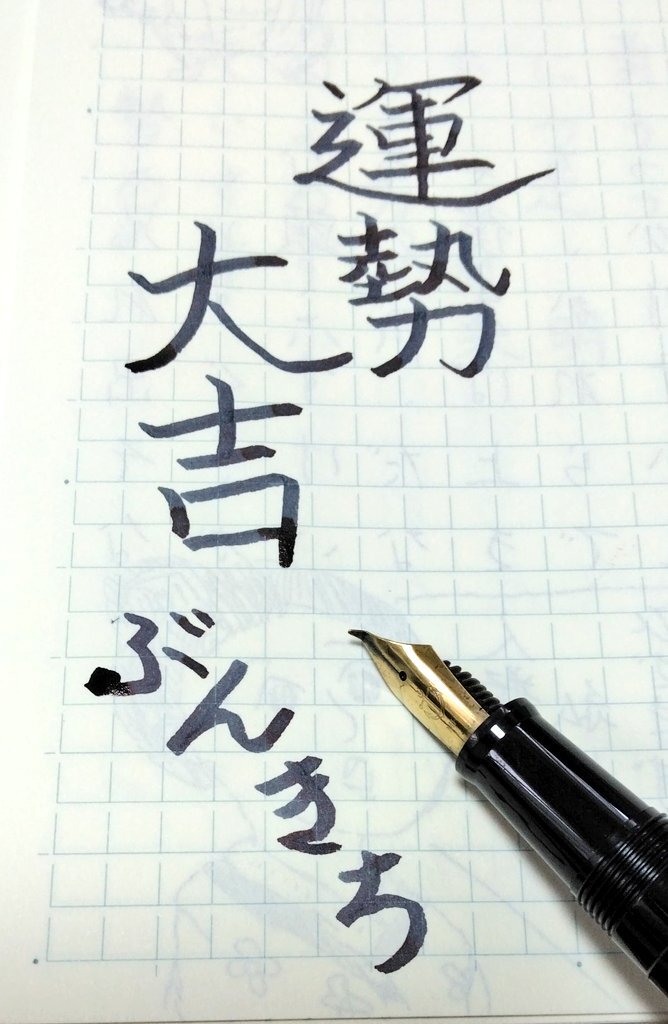 運勢
大吉
ぶんきち